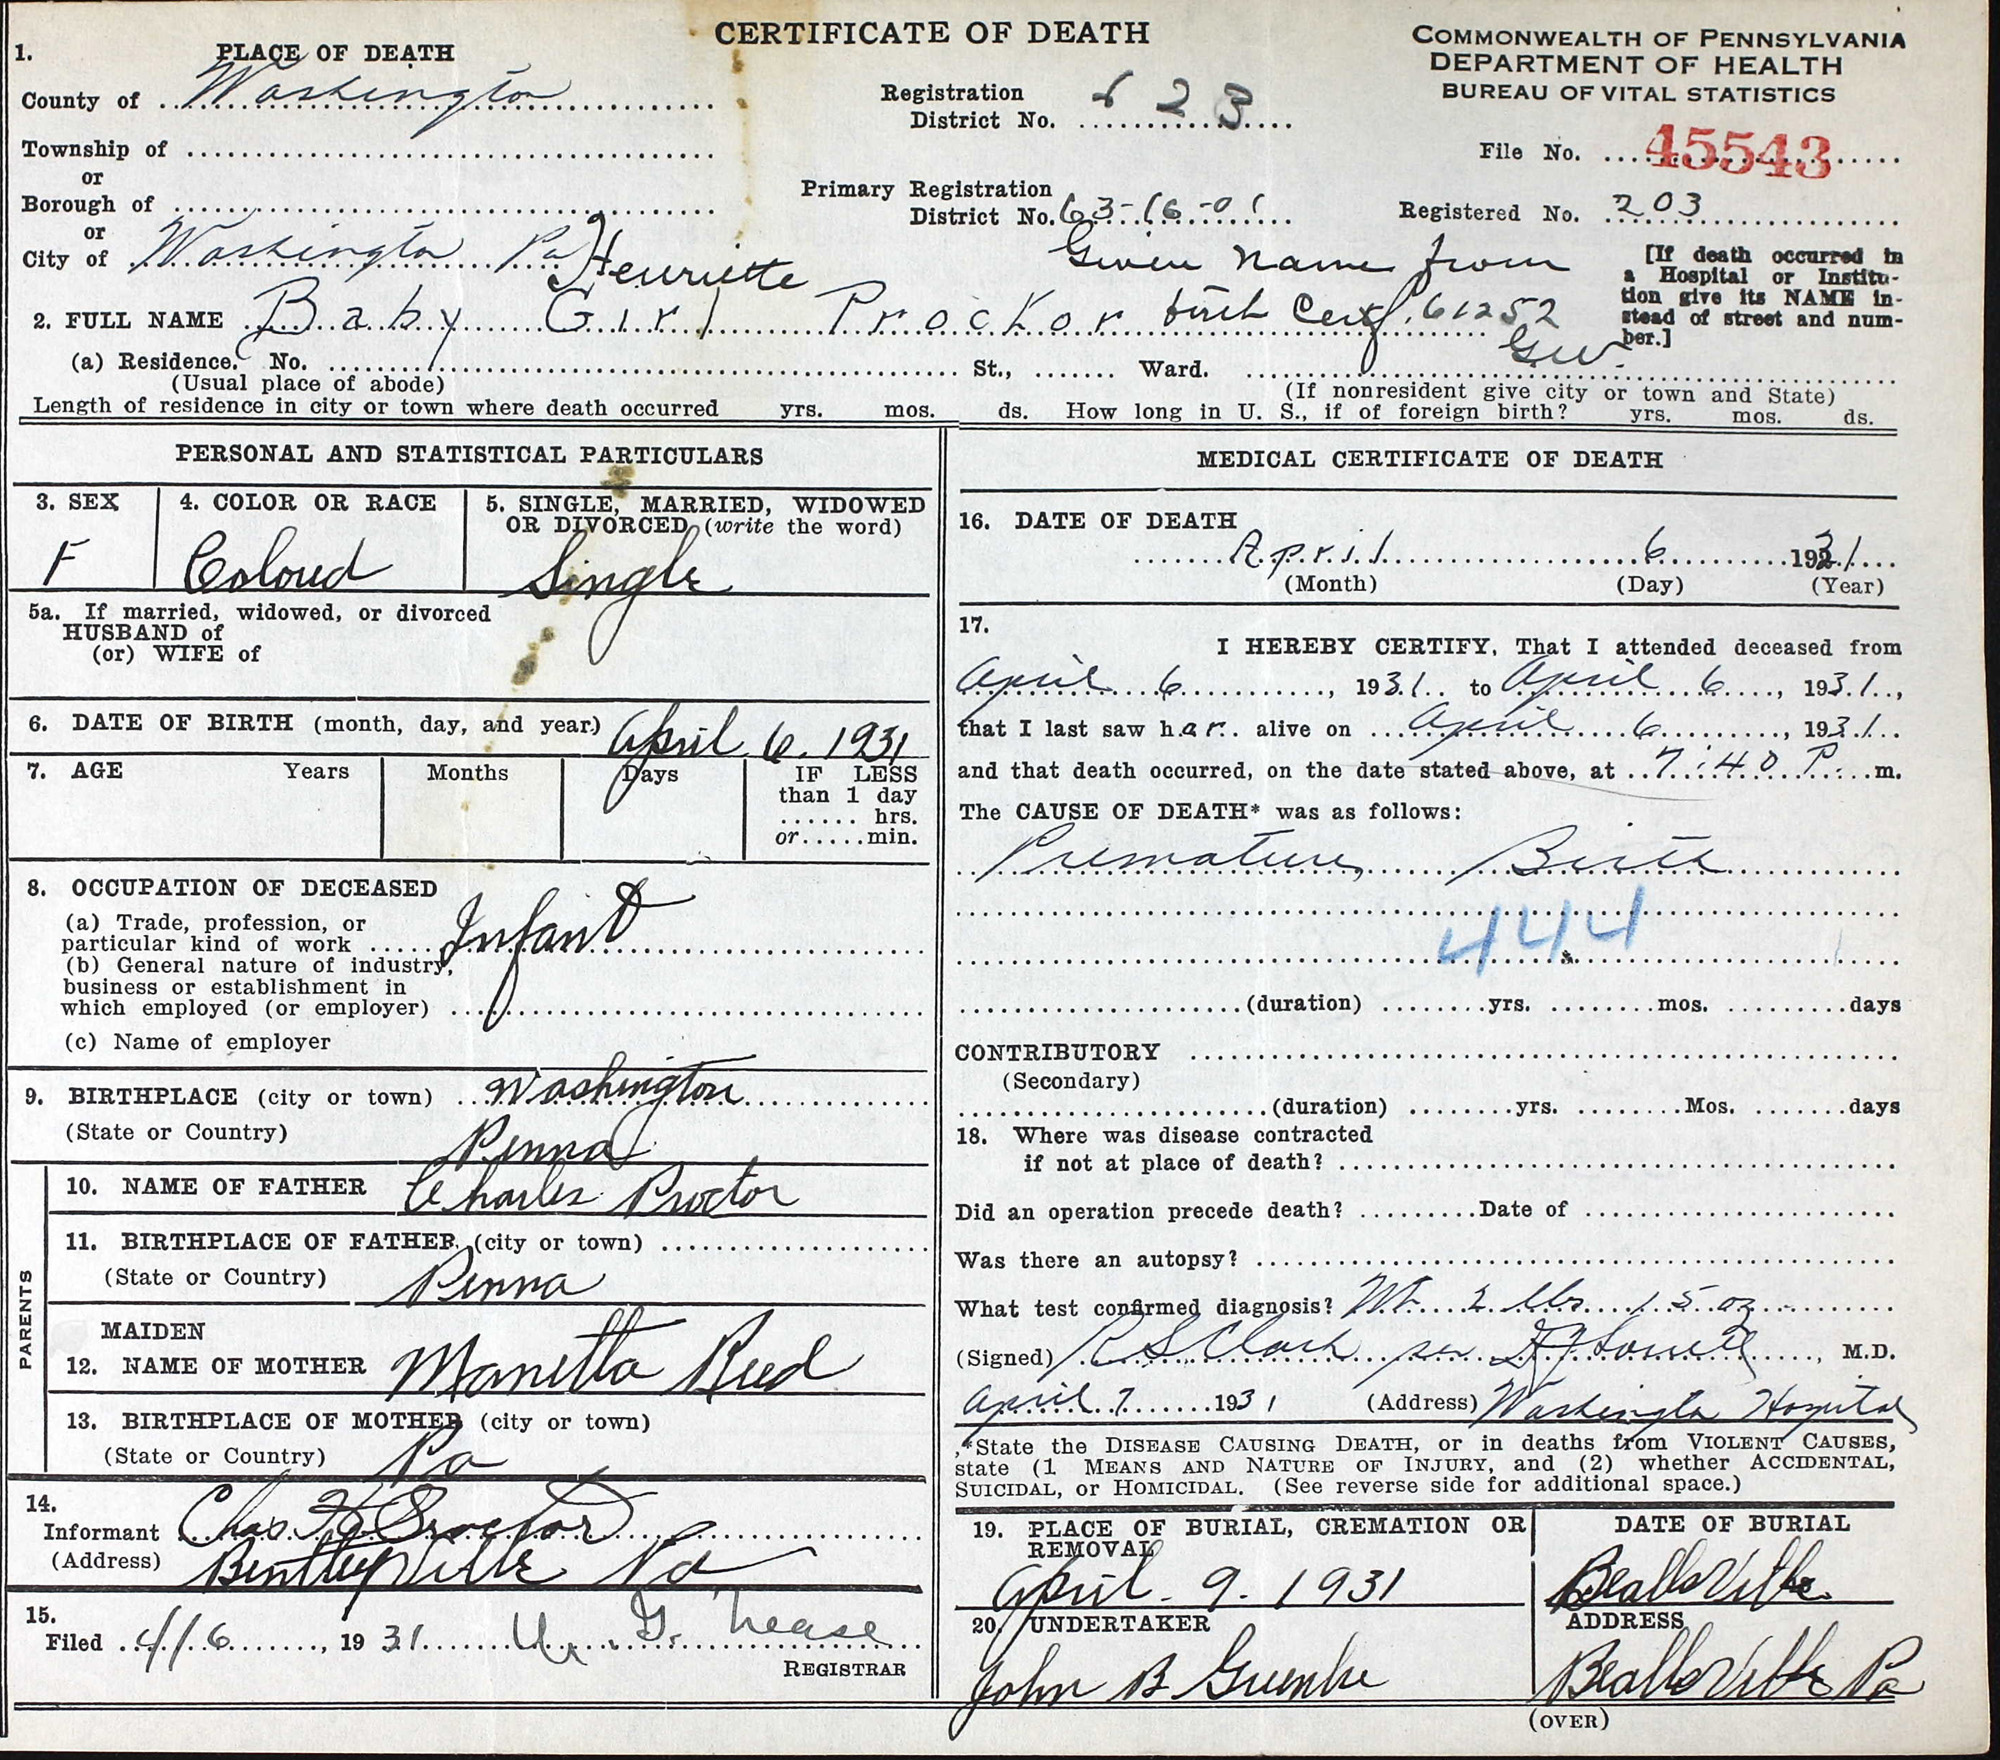 CERTIFICATE OF DEATH
COMMONWEALTH OF PENNSYLVANIA
DEPARTMENT OF HEALTH
BUREAU OF VITAL STATISTICS
1. PLACE OF DEATH
County of Washington
Registration District No. 623
File No. 45543
Township of
or
Borough of
Primary Registration District No. 63-16-01
Registered No. 203
or
City of Washington Pa
Henriette
Given name from
birth Cert. 61252
GW
[If death occurred in a Hospital or Institution give its NAME instead of street and number.]
2. FULL NAME Baby Girl Prockor
(a) Residence. No. St., Ward.
(Usual place of abode) (If nonresident give city or town and State)
Length of residence in city or town where death occurred yrs. mos. ds. How long in U. S., if of foreign birth? yrs. mos. ds.
PERSONAL AND STATISTICAL PARTICULARS
3. SEX
F
4. COLOR OR RACE
Colored
5. SINGLE, MARRIED, WIDOWED
OR DIVORCED (write the word)
Single
5a. If married, widowed, or divorced
HUSBAND of
(or) WIFE of
6. DATE OF BIRTH (month, day, and year) April 6. 1931
7. AGE Years Months Days IF LESS
than 1 day
hrs.
or min.
8. OCCUPATION OF DECEASED
(a) Trade, profession, or
particular kind of work Infant
(b) General nature of industry,
business or establishment in
which employed (or employer)
(c) Name of employer
9. BIRTHPLACE (city or town) Washington
(State or Country) Penna
PARENTS
10. NAME OF FATHER Charles Proctor
11. BIRTHPLACE OF FATHER (city or town)
(State or Country) Penna
MAIDEN
12. NAME OF MOTHER Manetta Reed
13. BIRTHPLACE OF MOTHER (city or town)
(State or Country) Pa
14.
Informant Chas H Proctor
(Address) Bentleyville Pa
15.
Filed 4/6, 1931 U. G. Nease
REGISTRAR
MEDICAL CERTIFICATE OF DEATH
16. DATE OF DEATH
April 6 1931
(Month) (Day) (Year)
17.
I HEREBY CERTIFY, That I attended deceased from
April 6, 1931 to April 6, 1931,
that I last saw har alive on April 6, 1931
and that death occurred, on the date stated above, at 7:40 P. m.
The CAUSE OF DEATH* was as follows:
Premature Birth
444
(duration) yrs. mos. days
CONTRIBUTORY
(Secondary)
(duration) yrs. Mos. days
18. Where was disease contracted
if not at place of death?
Did an operation precede death? Date of
Was there an autopsy?
What test confirmed diagnosis? Wt. 2 lbs 15 oz
(Signed) R S Clark per, M.D.
April 7 1931 (Address) Washington Hospital
*State the DISEASE CAUSING DEATH, or in deaths from VIOLENT CAUSES,
state (1 MEANS AND NATURE OF INJURY, and (2) whether ACCIDENTAL,
SUICIDAL, or HOMICIDAL. (See reverse side for additional space.)
19. PLACE OF BURIAL, CREMATION OR
REMOVAL
April 9. 1931
DATE OF BURIAL
Beallsville
20. UNDERTAKER
John B Greenlee
ADDRESS
Beallsville Pa
(OVER)